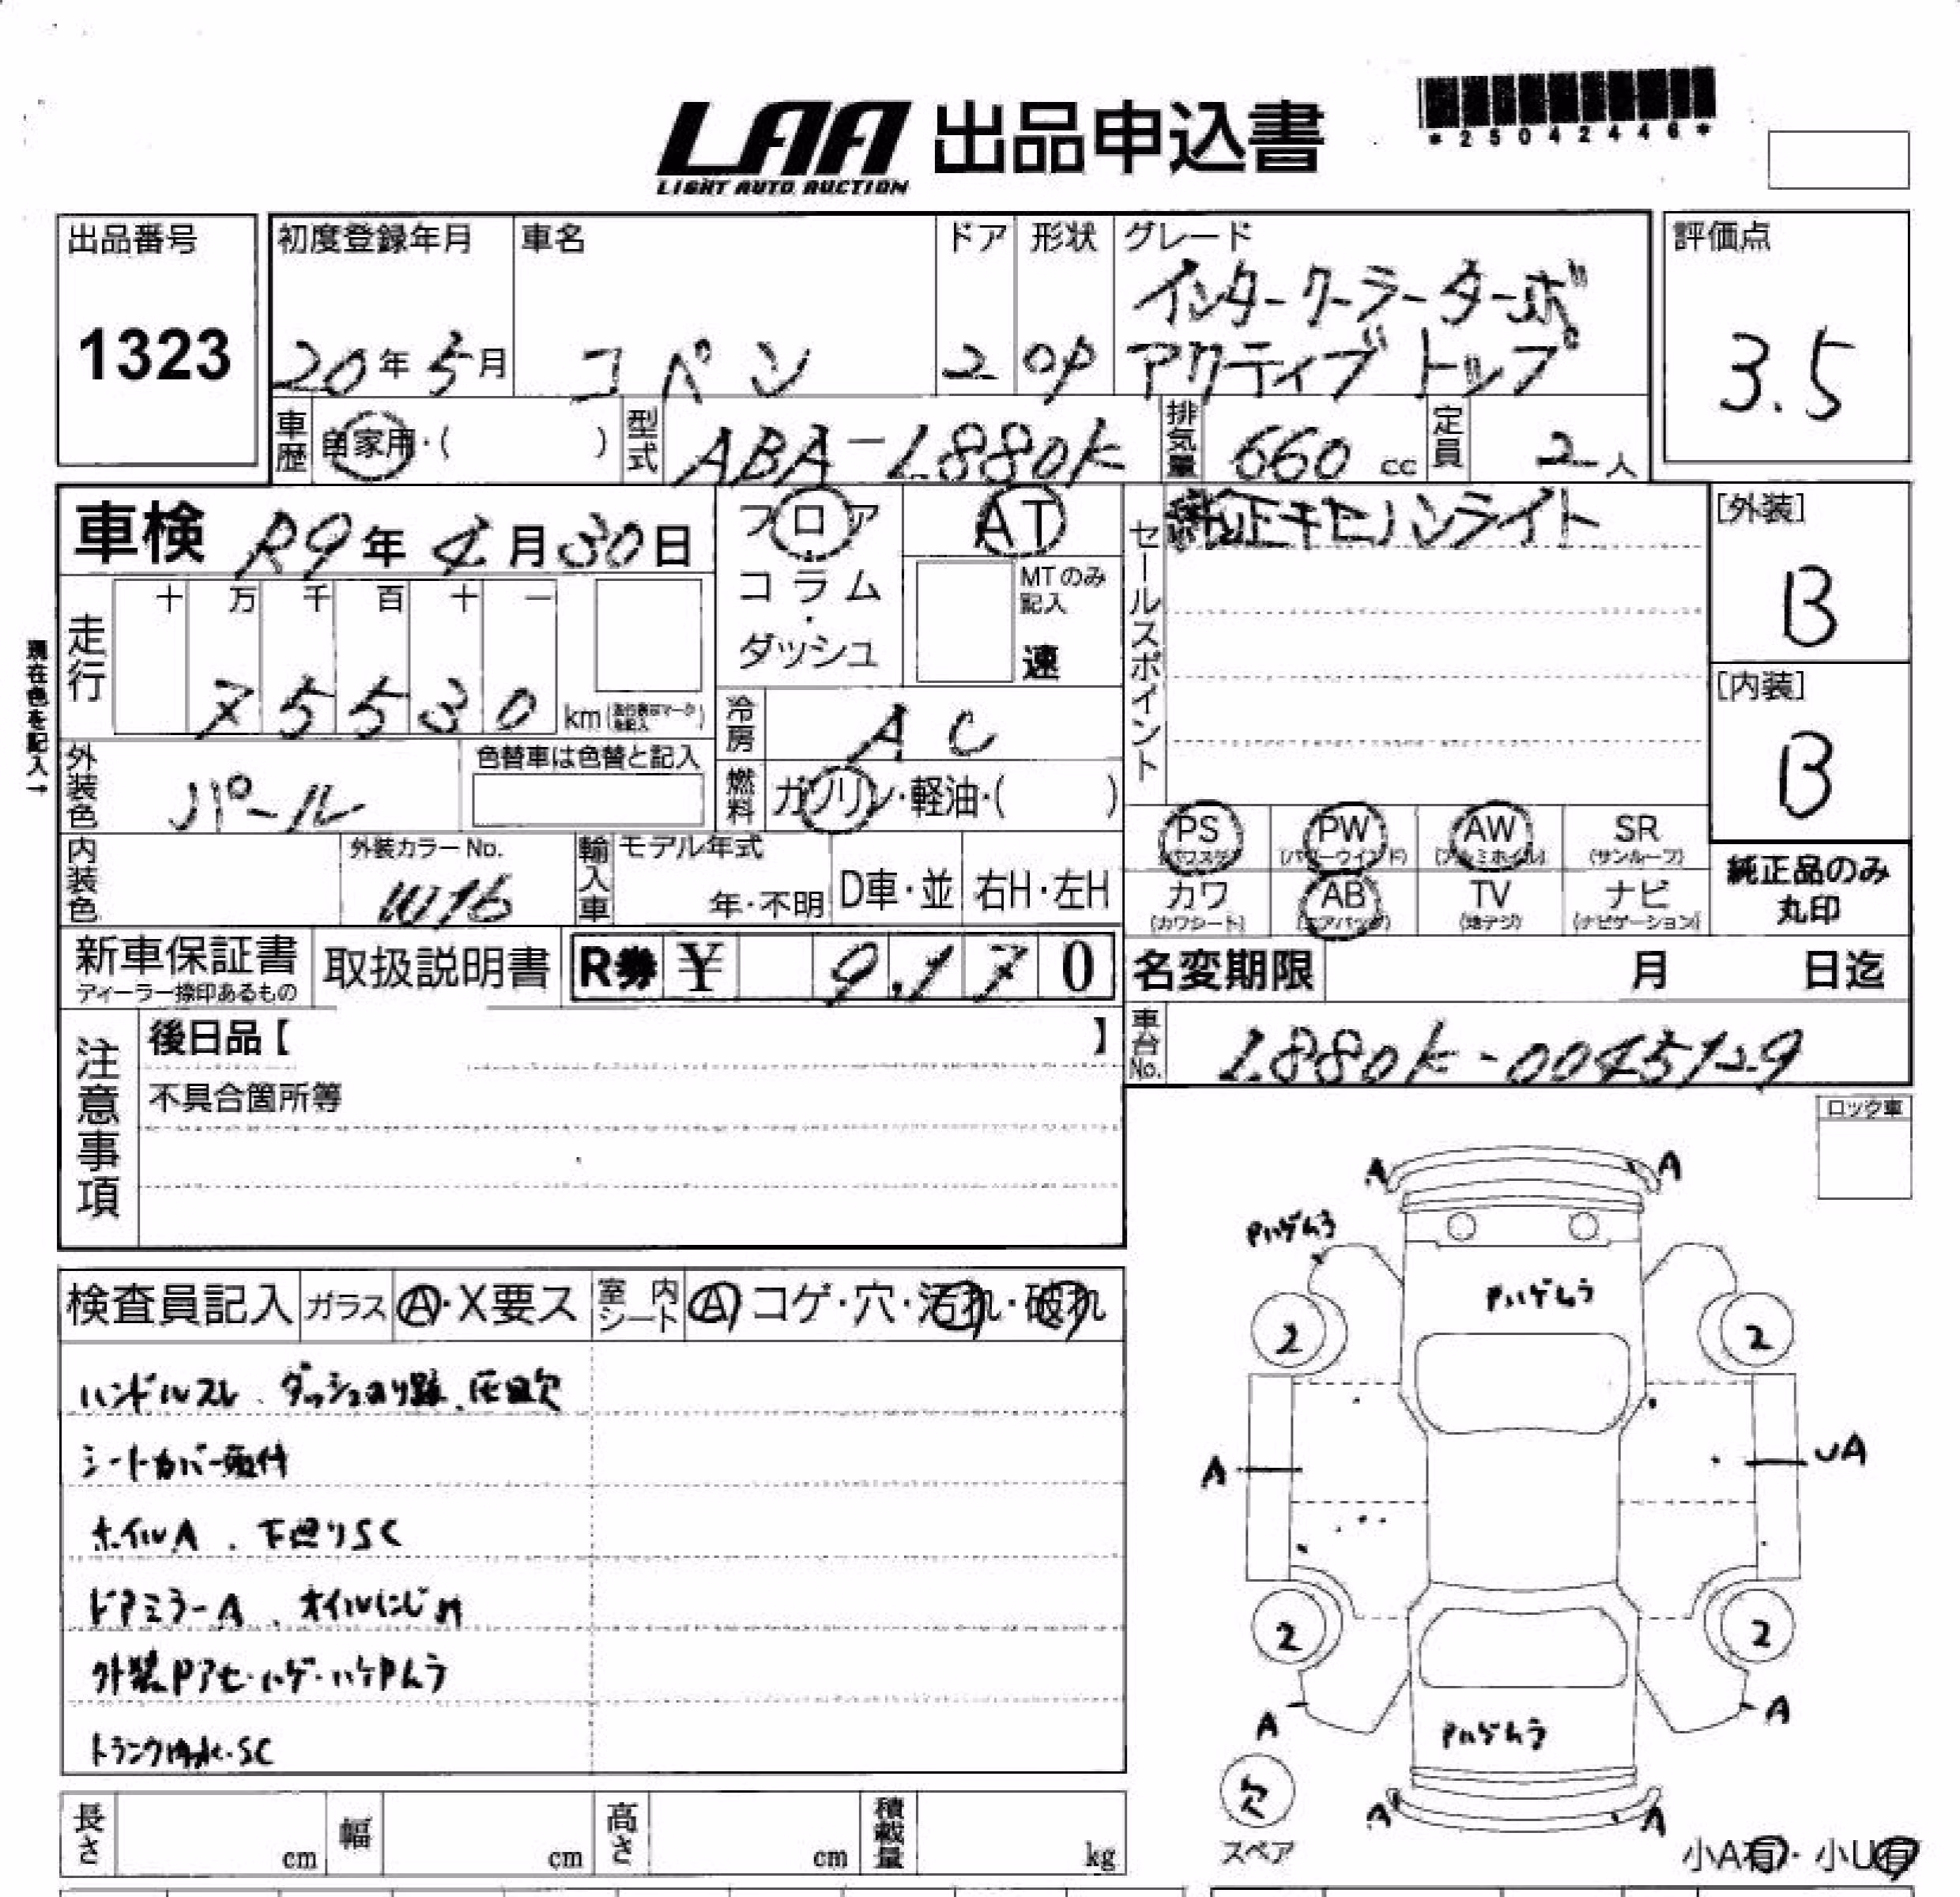 LAA 出品申込書
LIGHT AUTO AUCTION
*25042446*
出品番号
1323
初度登録年月
20年5月
車名
コペン
ドア
2
形状
OP
グレード
インタークーラーターボ
アクティブトップ
評価点
3.5
車歴
自家用・( )
型式
ABA-L880K
排気量
660 cc
定員
2人
車検 R9年4月30日
フロア
コラム
・
ダッシュ
AT
MTのみ
記入
速
セールスポイント
純正キセノンライト
[外装]
B
[内装]
B
現在色を記入→
走行
十 万 千 百 十 一
7 5 5 3 0 km
冷房
AC
外装色
パール
色替車は色替と記入
燃料
ガソリン・軽油・( )
内装色
外装カラーNo.
W16
輸入車
モデル年式
年・不明
D車・並
右H・左H
PS
(パワステ)
PW
(パワーウインド)
AW
(アルミホイル)
SR
(サンルーフ)
カワ
(カワシート)
AB
(エアバッグ)
TV
(地デジ)
ナビ
(ナビゲーション)
純正品のみ
丸印
新車保証書
ディーラー捺印あるもの
取扱説明書
R券 ¥ 9,170
名変期限 月 日迄
車台No.
L880K-0045129
注意事項
後日品【 】
不具合箇所等
ロック車
検査員記入
ガラス
A・X要ス
室内シート
A コゲ・穴・汚れ・破れ
ハンドルスレ、ダッシュのり跡、灰皿欠
シートカバー取付
ホイルA、下廻りSC
ドアミラーA、オイルにじみ
外装Pアセ・ハゲ・ハケPムラ
SC
A A
Pハゲムラ
Pハゲムラ
2 2
A UA
2 2
A A
Pハゲムラ
欠
スペア
A A
小A有・小U有
長さ cm
幅 cm
高さ cm
積載量 kg